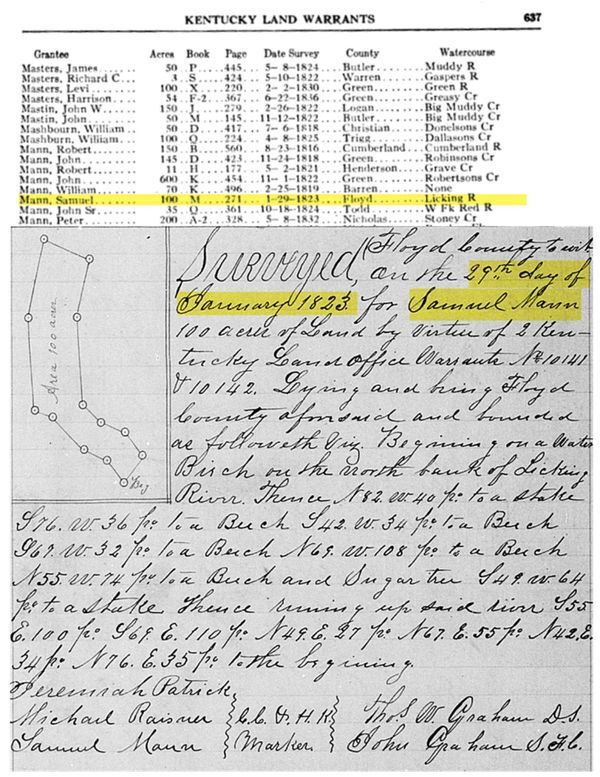 KENTUCKY LAND WARRANTS 637
Grantee Acres Book Page Date Survey County Watercourse
Masters, James....... 50 P.....445... 5- 8-1824....Butler.......Muddy R
Masters, Richard C... 3 S.....424... 5-10-1822....Warren.......Gaspers R
Masters, Levi........ 100 X.....220... 2- 2-1830....Green........Green R
Masters, Harrison.... 54 F-2...367... 6-22-1836....Green........Greasy Cr
Mastin, John W....... 150 J.....279... 2-26-1822....Logan........Big Muddy Cr
Mastin, John......... 50 M.....145...11-12-1822....Butler.......Big Muddy Cr
Mashbourn, William... 50 D.....417... 7- 6-1818....Christian....Donelsons Cr
Mashburn, William.... 100 Q.....224... 4- 8-1825....Trigg........Dallasons Cr
Mann, Robert......... 150 B.....560... 8-23-1816....Cumberland...Cumberland R
Mann, John........... 145 D.....423...11-24-1818....Green........Robinsons Cr
Mann, Robert......... 11 H.....177... 5- 2-1821....Henderson....Grave Cr
Mann, John........... 600 K.....454...11- 1-1822....Green........Robertsons Cr
Mann, William........ 70 K.....496... 2-25-1819....Barren.......None
Mann, Samuel......... 100 M.....271... 1-29-1823....Floyd........Licking R
Mann, John Sr........ 35 Q.....361...10-18-1824....Todd.........W Fk Red R
Mann, Peter.......... 200 A-2...328... 5- 8-1832....Nicholas.....Stoney Cr
Area 100 acres
Beg
(Floyd County to wit
Surveyed, on the 29th day of
January 1823 for Samuel Mann
100 acres of Land by virtue of 2 Ken-
tucky Land Office Warrants No 10141
& 10142. Lying and being Floyd
County aforesaid and bounded
as followeth Viz. Begining on a Water
Birch on the north bank of Licking
River. Thence N82. W. 40 po to a stake
S76. W. 36 po to a Beech S42. W. 34 po to a Beech
S67. W. 32 po to a Beech N69. W. 108 po to a Beech
N55 W. 74 po to a Beech and Sugar tree S49. W. 64
po to a stake Thence runing up said river S55
E. 100 po S69. E. 110 po N49. E. 27 po N67. E. 55 po N42. E.
34 po N76. E. 35 po to the begining.
Jeremiah Patrick
Michael Raisner } C.C. & H.K } Thos. W. Graham D.S.
Samuel Mann } Marker } John Graham S.F.C.